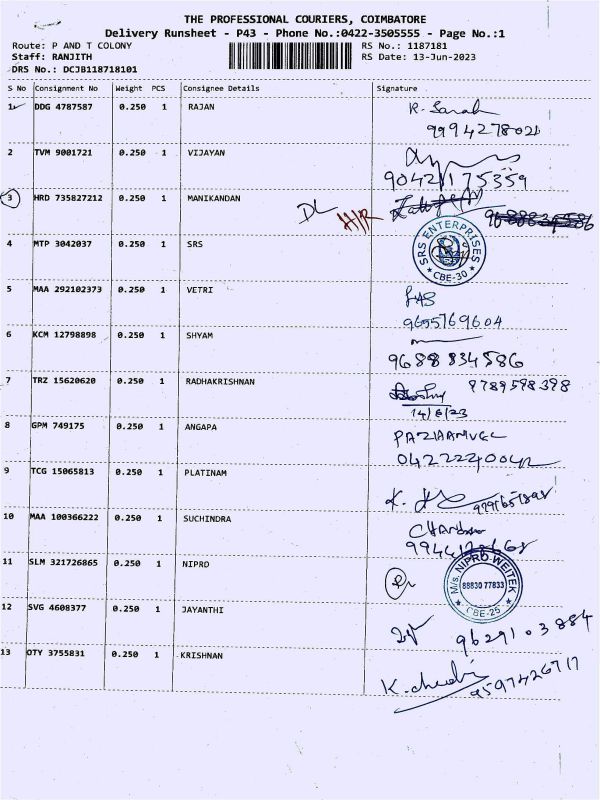 THE PROFESSIONAL COURIERS, COIMBATORE
Delivery Runsheet - P43 - Phone No.:0422-3505555 - Page No.:1
Route: P AND T COLONY RS No.: 1187181
Staff: RANJITH RS Date: 13-Jun-2023
DRS No.: DCJB118718101
S No Consignment No Weight PCS Consignee Details Signature
1 DDG 4787587 0.250 1 RAJAN R. Sarah
9994278021
2 TVM 9001721 0.250 1 VIJAYAN
90421175359
3 HRD 735827212 0.250 1 MANIKANDAN DL H/R
4 MTP 3042037 0.250 1 SRS SRS ENTERPRISES
CBE-30
5 MAA 292102373 0.250 1 VETRI
9655769604
6 KCM 12798898 0.250 1 SHYAM
9688834586
7 TRZ 15620620 0.250 1 RADHAKRISHNAN 9789598398
14/6/23
8 GPM 749175 0.250 1 ANGAPA
9 TCG 15065813 0.250 1 PLATINAM
10 MAA 100366222 0.250 1 SUCHINDRA
11 SLM 321726865 0.250 1 NIPRO M/s. NIPRO WEITEK
88830 77833
CBE-25
12 SVG 4608377 0.250 1 JAYANTHI
9629103884
13 OTY 3755831 0.250 1 KRISHNAN
9597426717